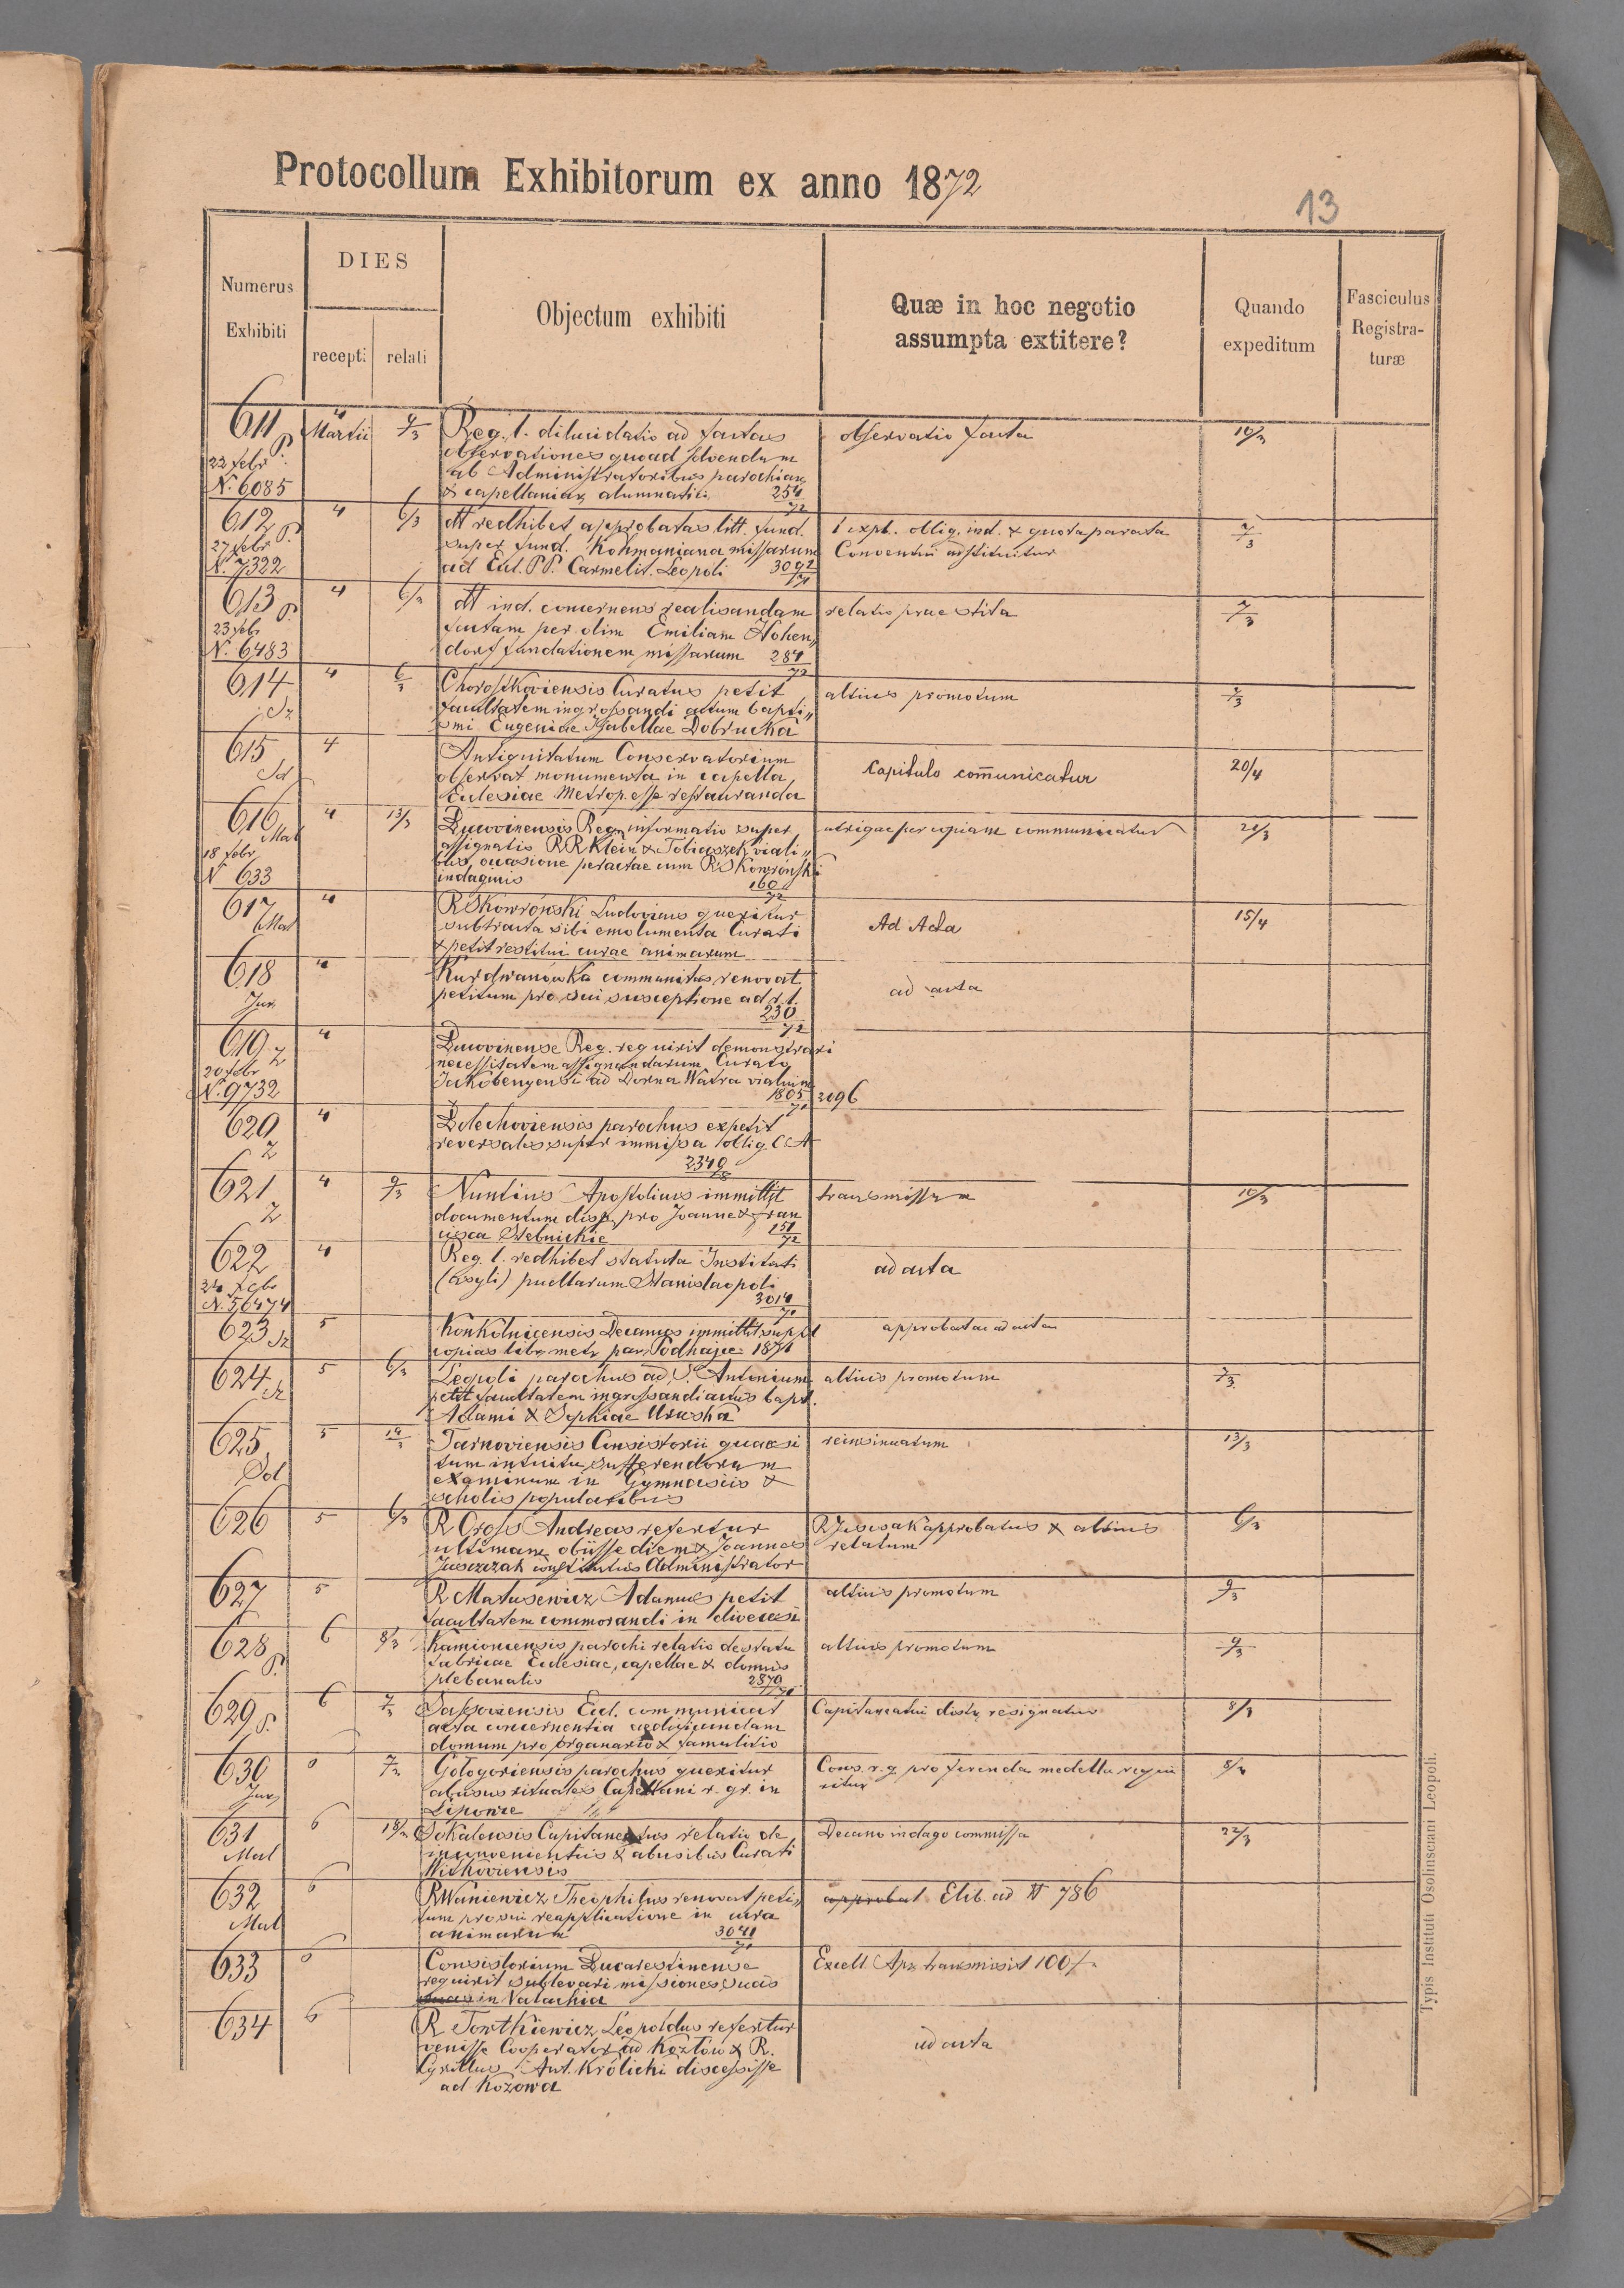 Protocollum Exhibitorum ex anno 1872
13
Numerus Exhibiti
DIES
recepti
relati
Objectum exhibiti
Quæ in hoc negotio assumpta extitere?
Quando expeditum
Fasciculus Registraturæ
611 P. Martii 4 9/3 Reg. l. dilucidatio ad factas observatio facta 10/3
22 febr observationes quoad solvendum
N. 6085 ab Administratoribus parochiarum
& capellaniar alumnatici 254/72
612 P. 4 6/3 dtt redhibet approbatas litt. fund. 1 expl. oblig. ind. & quota parata 7/3
27 febr super fund. Kohmaniana missarum Conventui restituitur
N. 7322 ad Eccl. PP. Carmelit. Leopoli 3092/71
613 P. 4 6/3 dtt ind. concernens realisandam relatio praestita 7/3
23 febr factam per olim Emiliam Hohen„
N. 6483 dorf fundationem missarum 284/72
614 Sz 4 6/3 Chorostkoviensis Curatus petit altius promotum 7/3
facultatem ingrossandi actum bapti„
smi Eugeniae Isabellae Dobrucka
615 4 Antiquitatum Conservatorium Capitulo com̄unicatur 20/4
observat monumenta in capella
Ecclesiae Metrop. esse restauranda
616 Mal 4 13/3 Bucovinensis Reg. informatio super utrique per copiam communicatur 21/3
18 febr assignatis RR Klein & Tobiaszek viali„
N 633 bus, occasione peractae cum R. Skowroński
indaginis 160/72
617 Mal 4 R Skowroński Ludovicus queritur Ad Acta 15/4
subtracta sibi emolumenta Curati
& petit restitui curae animarum
618 Jur 4 Kurdwanówka communitas renovat ad acta
petitum pro sui susceptione ad r. l.
230/72
619 Z 4 Bucovinense Reg. requirit demonstrari
20 febr necessitatem assignandarum Curato
N. 9732 Jakobenyensi ad Dorna Watra vialium
1805/71 2096
620 Z 4 Bolechoviensis parochus expetit
reversales super immissa oblig. C.A
2349
621 Z 4 9/3 Nuntius Apostolicus immittit transmissum 10/3
documentum disp. pro Joanne & Fran
cisca Stebnickie 151/72
622 4 Reg. l. redhibet statuta Instituti ad acta
24 febr (asyli) puellarum Stanislaopoli
N. 56474 3014/71
623 Sz 5 Konkolnicensis Decanus immittit suppl approbatae ad acta
copias libr. metr. par. Podhajce 1871
624 Sz 5 6/3 Leopoli parochus ad S. Antonium altius promotum 7/3
petit facultatem ingrossandi actus bapt.
Adami & Sophiae Uruska
625 Sol 5 12/3 Tarnoviensis Consistorii quaesi reinsinuatum 13/3
tum intuitu sufferendorum
examinum in Gymnasiis &
scholis popularibus
626 5 6/3 R Gross Andreas refertur R Juszczak approbatus & altius 6/3
ultimam obiisse diem & Joannes relatum
Juszczak constitutus Administrator
627 5 R Matusewicz Adamus petit altius promotum 9/3
facultatem commorandi in dioecesi
628 P. 6 8/3 Kamioncensis parochi relatio de statu altius promotum 9/3
fabricae Ecclesiae, capellae & domus
plebanalis 2870/71
629 P. 6 7/3 Sassoviensis Eccl. communicat Capitaneatui distr. resignatur 8/3
acta concernentia aedificandam
domum pro organario & famulitio
630 Jur 6 7/3 Gołogoriensis parochus queritur Cons. r. g. pro ferenda medella requi 8/3
abusus rituales Capellani r. gr. in ritur
Lipowce
631 Mal 6 18/3 Sokalensis Capitaneatus relatio de Decano indago commissa 22/3
inconvenientiis & abusibus Curati
Witkoviensis
632 Mal 6 R Waniewicz Theophilus renovat peti„ approbat Elib. ad N 786
tum pro sui reapplicatione in cura
animarum 3041/71
633 6 Consistorium Bucarestinense Excell. Apz transmisit 100 f.
requirit sublevari missiones suas
suas in Valachia
634 6 R Towtkiewicz Leopoldus refertur ad acta
venisse Cooperator ad Kozłów & R.
Cyrillus Ant. Królicki discessisse
ad Kozowa
Typis Instituti Ossoliniani Leopoli.